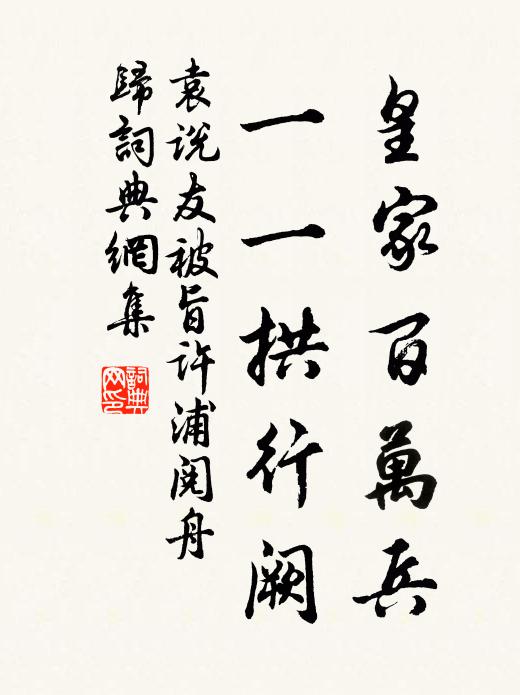 皇家百萬兵
一一拱行闕
袁說友被旨許浦閱舟
歸詞典網集
詞典網印